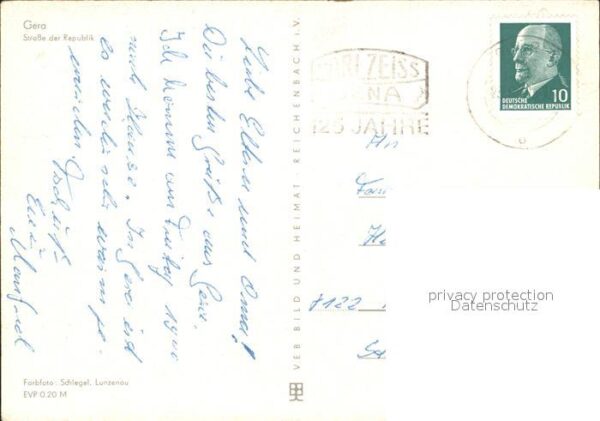 Gera
Straße der Republik
Liebe Eltern und Oma!
Die besten Grüße aus Gera.
Ich komme am Freitag 19⁰⁰
nach Hause. In Gera ist
es wieder sehr warm ge-
worden.
Tschüß
Euer
Manfred
Farbfoto: Schlegel, Lunzenau
EVP 0.20 M
VEB BILD UND HEIMAT · REICHENBACH i. V.
CARL ZEISS
JENA
125 JAHRE
DEUTSCHE
DEMOKRATISCHE REPUBLIK
10
An
Fam
privacy protection
Datenschutz